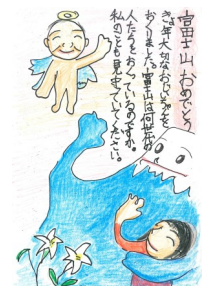 富士山おめでとう
きょ年大好きなおじいちゃんを
おくりました。富士山は何世紀の
人たちをおくっているのですか。
私のことも見守っていてください。